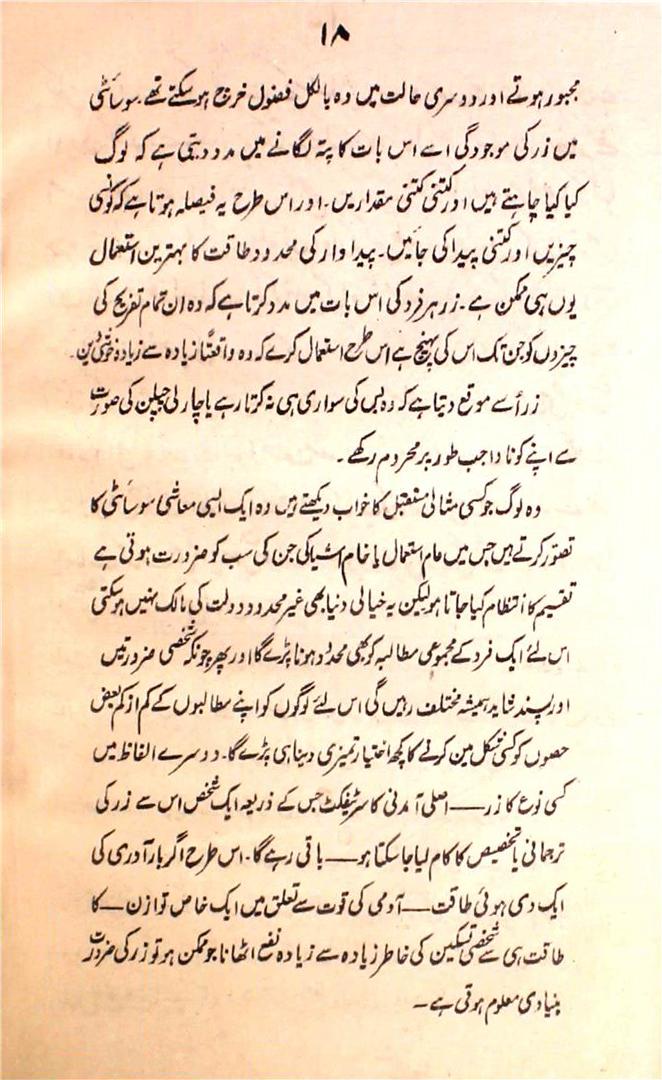 ۱۸
مجبور ہوتے اور دوسری حالت میں وہ بالکل فضول خرچ ہو سکتے تھے۔ سوسائٹی
میں زر کی موجودگی اسے اس بات کا پتہ لگانے میں مدد دیتی ہے کہ لوگ
کیا کیا چاہتے ہیں اور کتنی کتنی مقدار یں۔ اور اس طرح یہ فیصلہ ہوتا ہے کہ کونسی
چیزیں اور کتنی پیدا کی جائیں۔ پیداوار کی محدود طاقت کا بہترین استعمال
یوں ہی ممکن ہے۔ زر ہر فرد کی اس بات میں مدد کرتا ہے کہ وہ ان تمام تفریح کی
چیزوں کو جن تک اس کی پہنچ ہے اس طرح استعمال کرے کہ وہ واقعتاً زیادہ سے زیادہ خوشی دیں۔
زر اُسے موقع دیتا ہے کہ وہ بس کی سواری ہی نہ کرتا رہے یا چارلی چپلن کی صورت
سے اپنے کو نا واجب طور پر محروم رکھے۔
وہ لوگ جو کسی مثالی مستقبل کا خواب دیکھتے ہیں وہ ایک ایسی معاشی سوسائٹی کا
تصور کرتے ہیں جس میں عام استعمال یا خام اشیا کی جن کی سب کو ضرورت ہوتی ہے
تقسیم کا انتظام کیا جاتا ہو لیکن یہ خیالی دنیا بھی غیر محدود دولت کی مالک نہیں ہو سکتی
اس لئے ایک فرد کے مجموعی مطالبہ کو بھی محدود ہونا پڑے گا اور پھر چونکہ شخصی ضرورتیں
اور پسند شاید ہمیشہ مختلف رہیں گی اس لئے لوگوں کو اپنے مطالبوں کے کم از کم بعض
حصوں کو کسی شکل میں کرنے کا کچھ اختیار تمیزی دینا ہی پڑے گا۔ دوسرے الفاظ میں
کسی نوع کا زر — اصلی آمدنی کا سرٹیفکٹ جس کے ذریعہ ایک شخص اس سے زر کی
ترجمانی یا تخصیص کا کام لیا جا سکتا ہو — باقی رہے گا۔ اس طرح اگر بار آوری کی
ایک دی ہوئی طاقت — آدمی کی قوت سے تعلق میں ایک خاص توازن — کا
طاقت ہی سے شخصی تسکین کی خاطر زیادہ سے زیادہ نفع اٹھانا جو ممکن ہو تو زر کی ضرورت
بنیادی معلوم ہوتی ہے۔